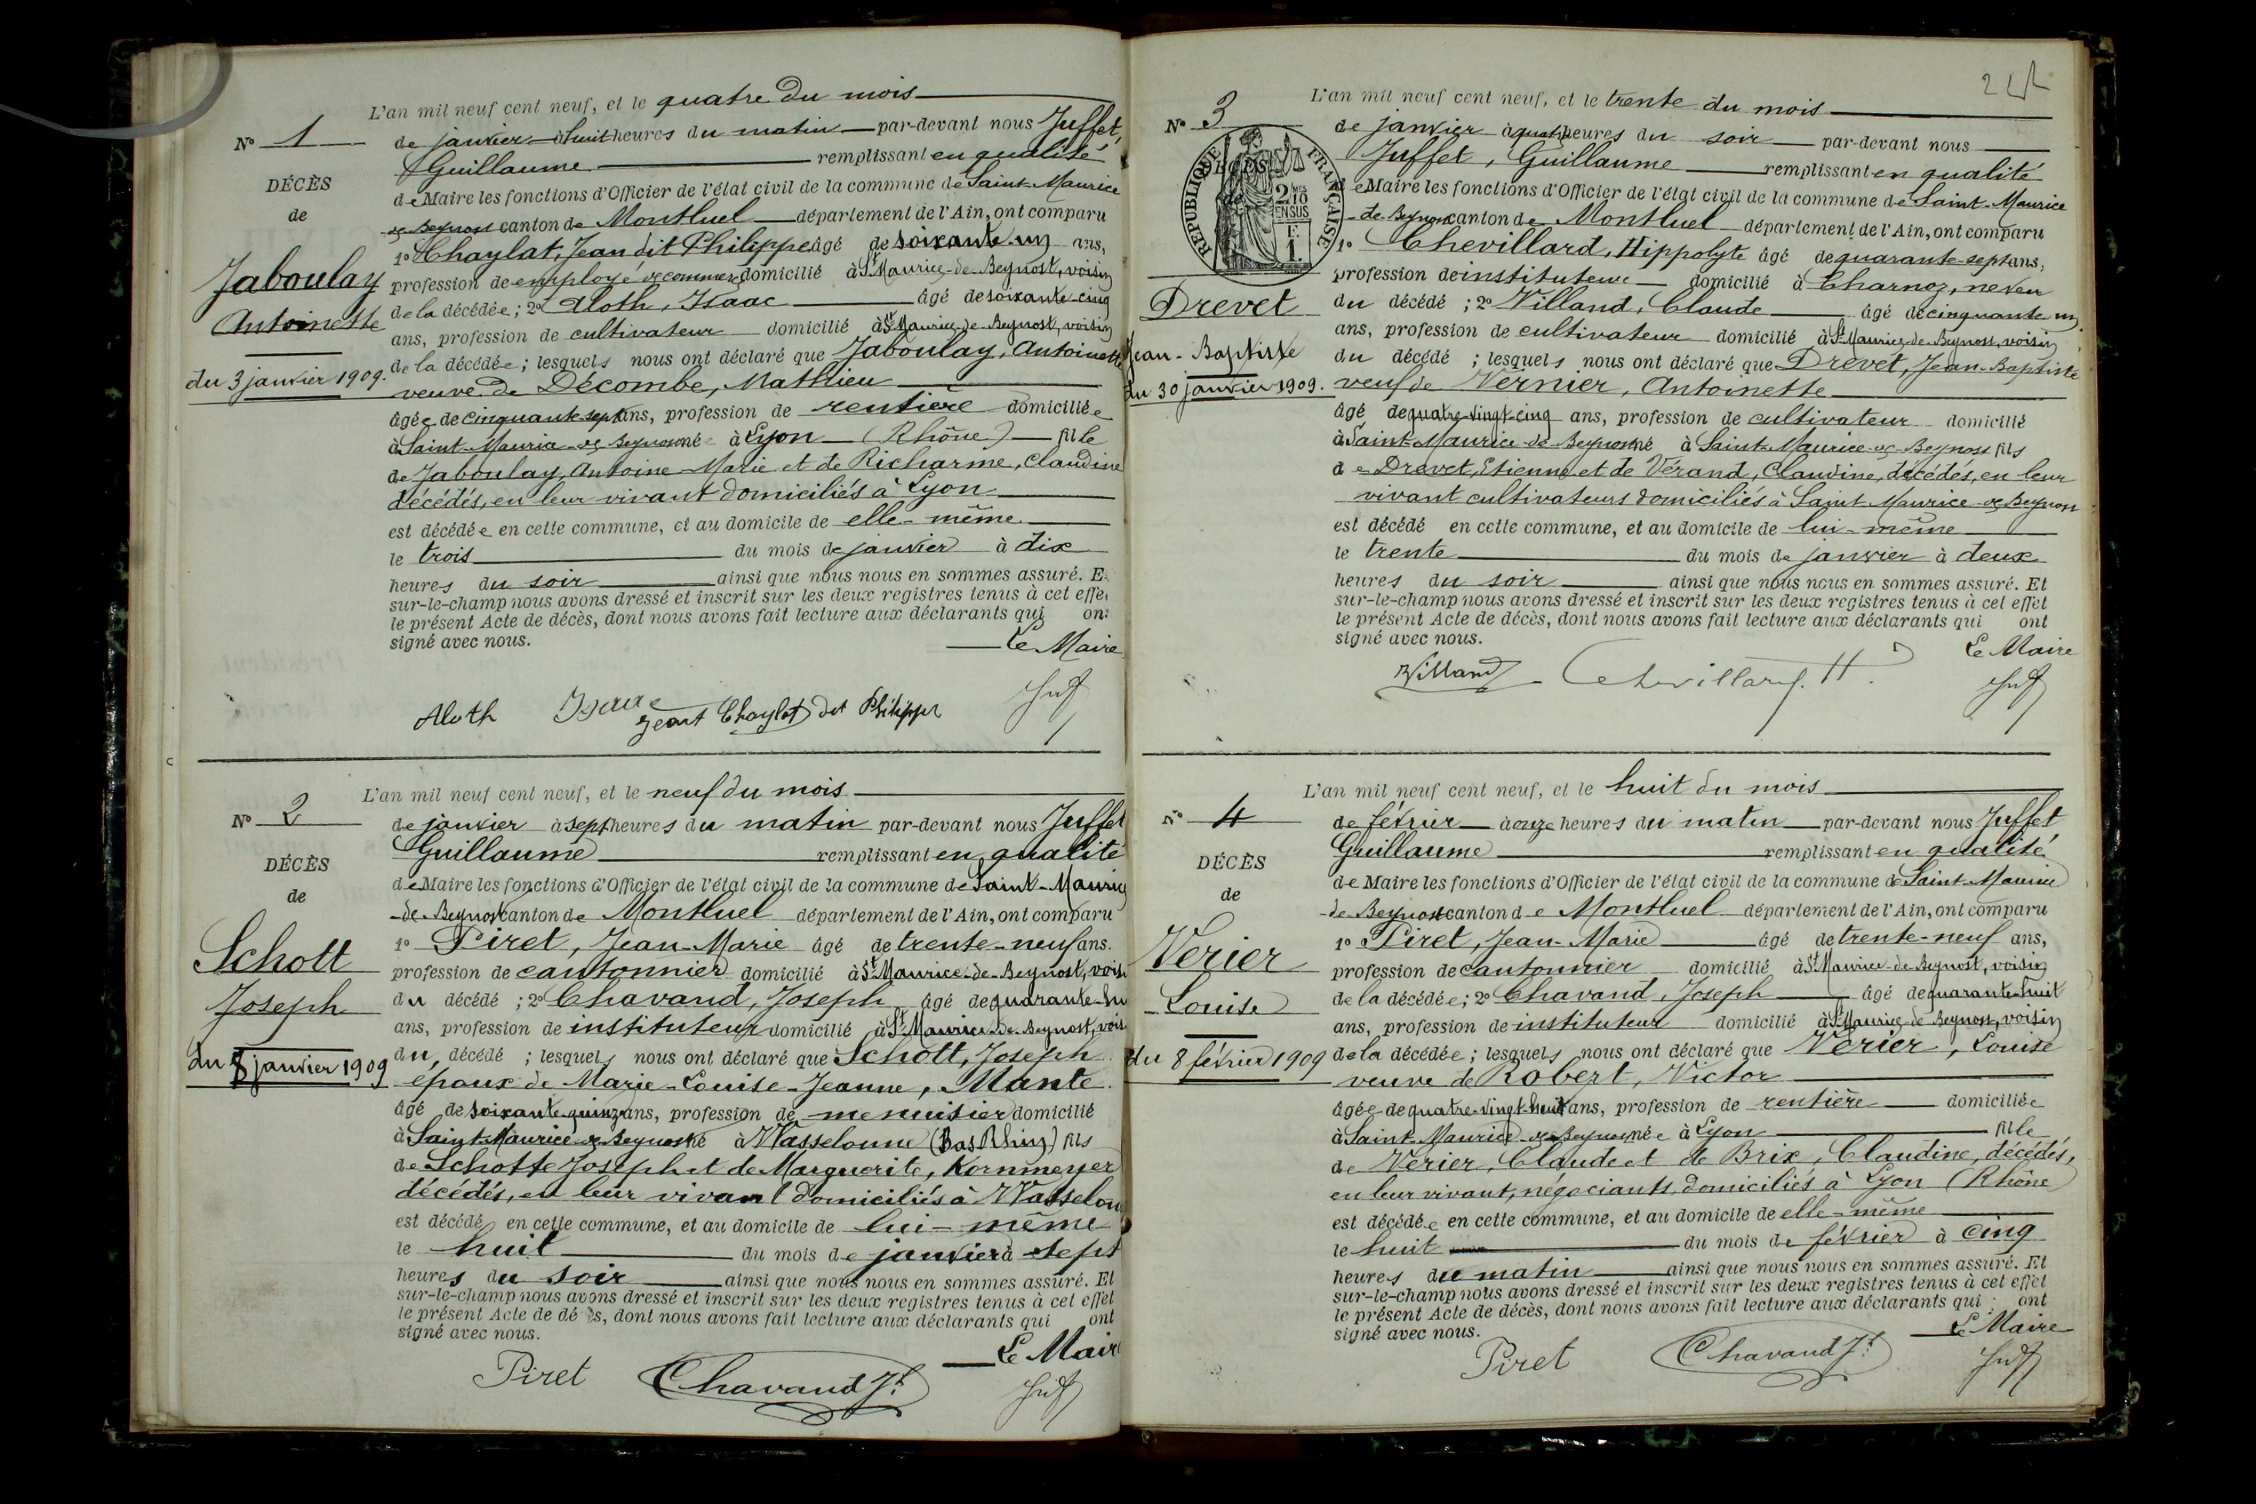 L'an mil neuf cent neuf, et le quatre du mois
N° 1
de janvier à huit heures du matin par-devant nous Juffet,
Guillaume remplissant en qualité
DÉCÈS
de Maire les fonctions d'Officier de l'état civil de la commune de Saint-Maurice
de
de Beynost canton de Montluel département de l'Ain, ont comparu
1° Chaylat, Jean dit Philippe âgé de soixante-un ans,
Jaboulay
profession de employé de commerce domicilié à St Maurice-de-Beynost, voisin
de la décédée; 2° Aloth, Isaac âgé de soixante-cinq
Antoinette
ans, profession de cultivateur domicilié à St Maurice-de-Beynost, voisin
de la décédée; lesquels nous ont déclaré que Jaboulay, Antoinette
du 3 janvier 1909.
veuve de Décombe, Mathieu
âgée de cinquante-sept ans, profession de rentière domiciliée
à Saint-Maurice-de-Beynost née à Lyon (Rhône) fille
de Jaboulay, Antoine-Marie et de Richarme, Claudine
décédés, en leur vivant domiciliés à Lyon
est décédée en cette commune, et au domicile de elle-même
le trois du mois de janvier à dix
heures du soir ainsi que nous nous en sommes assuré. E
sur-le-champ nous avons dressé et inscrit sur les deux registres tenus à cet effe
le présent Acte de décès, dont nous avons fait lecture aux déclarants qui on
signé avec nous.
Le Maire
Aloth Isaac Jean Chaylat dit Philippe Juf
L'an mil neuf cent neuf, et le neuf du mois
N° 2
de janvier à sept heures du matin par-devant nous Juffet
Guillaume remplissant en qualité
DÉCÈS
de Maire les fonctions d'Officier de l'état civil de la commune de Saint-Maurice
de
-de-Beynost canton de Montluel département de l'Ain, ont comparu
1° Piret, Jean-Marie âgé de trente-neuf ans.
Schott
profession de cantonnier domicilié à St Maurice-de-Beynost, vois
du décédé; 2° Chavand, Joseph âgé de quarante-hu
Joseph
ans, profession de instituteur domicilié à St Maurice-de-Beynost, vois
du décédé; lesquels nous ont déclaré que Schott, Joseph
du 8 janvier 1909
époux de Marie-Louise-Jeanne, Mante
âgé de soixante-quinze ans, profession de menuisier domicilié
à Saint-Maurice-de-Beynost né à Wasselonne (Bas Rhin) fils
de Schotte Joseph et de Marguerite, Kornmeyer
décédés, en leur vivant domiciliés à Wasselon
est décédé en cette commune, et au domicile de lui-même
le huit du mois de janvier à sept
heures du soir ainsi que nous nous en sommes assuré. Et
sur-le-champ nous avons dressé et inscrit sur les deux registres tenus à cet effet
le présent Acte de dé ès, dont nous avons fait lecture aux déclarants qui ont
signé avec nous.
Le Mair
Piret Chavand Jh Juf
L'an mil neuf cent neuf, et le trente du mois
N° 3
de janvier à quatre heures du soir par-devant nous
Juffet, Guillaume remplissant en qualité
RÉPUBLIQUE FRANÇAISE
2/10 EN SUS
F. 1.
de Maire les fonctions d'Officier de l'état civil de la commune de Saint-Maurice
-de-Beynost canton de Montluel département de l'Ain, ont comparu
1° Chevillard, Hippolyte âgé de quarante-sept ans,
profession de instituteur domicilié à Charnoz, neveu
Drevet
du décédé; 2° Villand, Claude âgé de cinquante-un
ans, profession de cultivateur domicilié à St Maurice-de-Beynost, voisin
Jean-Baptiste
du décédé; lesquels nous ont déclaré que Drevet, Jean-Baptiste
du 30 janvier 1909.
veuf de Vernier, Antoinette
âgé de quatre-vingt-cinq ans, profession de cultivateur domicilié
à Saint-Maurice-de-Beynost né à Saint-Maurice-de-Beynost fils
de Drevet, Etienne et de Vérand, Claudine, décédés, en leur
vivant cultivateurs domiciliés à Saint-Maurice-de-Beynon
est décédé en cette commune, et au domicile de lui-même
le trente du mois de janvier à deux
heures du soir ainsi que nous nous en sommes assuré. Et
sur-le-champ nous avons dressé et inscrit sur les deux registres tenus à cet effet
le présent Acte de décès, dont nous avons fait lecture aux déclarants qui ont
signé avec nous.
Le Maire
Villand Chevillard H. Juf
L'an mil neuf cent neuf, et le huit du mois
N° 4
de février à onze heures du matin par-devant nous Juffet
Guillaume remplissant en qualité
DÉCÈS
de Maire les fonctions d'Officier de l'état civil de la commune de Saint-Maurice
de
-de Beynost canton de Montluel département de l'Ain, ont comparu
1° Piret, Jean-Marie âgé de trente-neuf ans,
Verier
profession de cantonnier domicilié à St Maurice-de-Beynost, voisin
de la décédée; 2° Chavand, Joseph âgé de quarante-huit
Louise
ans, profession de instituteur domicilié à St Maurice-de-Beynost, voisin
de la décédée; lesquels nous ont déclaré que Verier, Louise
du 8 février 1909
veuve de Robert, Victor
âgée de quatre-vingt-huit ans, profession de rentière domiciliée
à Saint-Maurice-de-Beynost née à Lyon fille
de Verier, Claude et de Brix, Claudine, décédés,
en leur vivant, négociants, domiciliés à Lyon (Rhône)
est décédée en cette commune, et au domicile de elle-même
le huit du mois de février à cinq
heures du matin ainsi que nous nous en sommes assuré. Et
sur-le-champ nous avons dressé et inscrit sur les deux registres tenus à cet effet
le présent Acte de décès, dont nous avons fait lecture aux déclarants qui ont
signé avec nous.
Le Maire
Piret Chavand Jh Juf